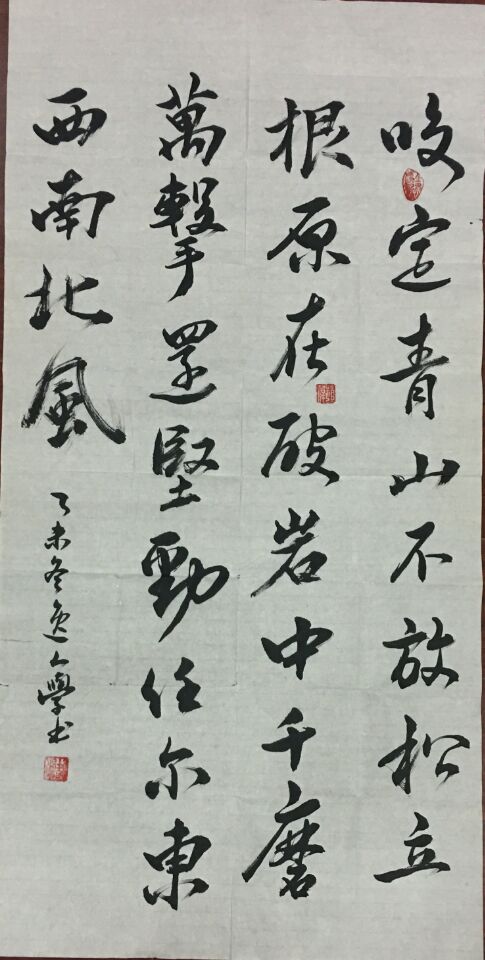 咬定青山不放松立
根原在破岩中千磨
萬擊還堅勁任尔東
西南北風
乙未冬逸人學书